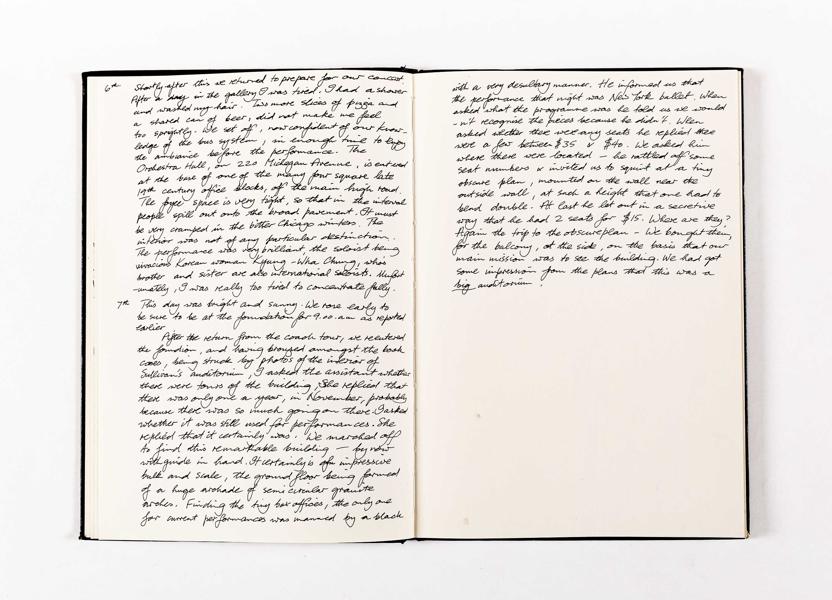 6th Shortly after this we returned to prepare for our concert
After a day in the gallery I was tired. I had a shower
and washed my hair. Two more slices of pizza and
a shared can of beer, did not make us feel
too sprightly. We set off, now confident of our know-
ledge of the bus system, in enough time to enjoy
the ambiance before the performance. The
Orchestra Hall, on 220 Michegan Avenue, is entered
at the base of one of the many four square late
19th century office blocks, off the main high road.
The foyer space is very tight, so that in the interval
people spill out onto the broad pavement. It must
be very cramped in the bitter Chicago winters. The
interior was not of any particular distinction.
The performance was very brilliant, the soloist being
vivacious Korean woman Kyung-Wha Chung, who's
brother and sister are also international soloists. Unfort
-unately, I was really too tired to concentrate fully.
7th This day was bright and sunny. We rose early to
be sure to be at the foundation for 9.00.am as reported
earlier.
After the return from the coach tour, we reentered
the foundion, and having browzed amongst the book
cases, being struck by photos of the interior of
Sullivan's auditorium, I asked the assistant whether
there were tours of the building, She replied that
there was only one a year, in November, probably
because there was so much going on there. I asked
whether it was still used for performances. She
replied that it certainly was. We marched off
to find this remarkable building — by now
with guide in hand. It certainly is of impressive
bulk and scale, the ground floor being formed
of a huge archade of semicircular granite
arches. Finding the tiny box offices, the only one
for current performances was manned by a black
with a very desultory manner. He informed us that
the performance that night was New York ballet. When
asked what the programme was he told us we would
-n't recognise the pieces because he didn't. When
asked whether there were any seats he replied there
were a few between $35 & $40. We asked him
where there were located - he rattled off some
seat numbers & invited us to squint at a tiny
obscure plan, mounted on the wall near the
outside wall, at such a height that one had to
bend double. At last he let out in a secretive
way that he had 2 seats for $15. Where are they?
Again the trip to the obscure plan - We bought them,
for the balcony, at the side, on the basis that our
main mission was to see the building. We had got
some impression from the plans that this was a
big auditorium.